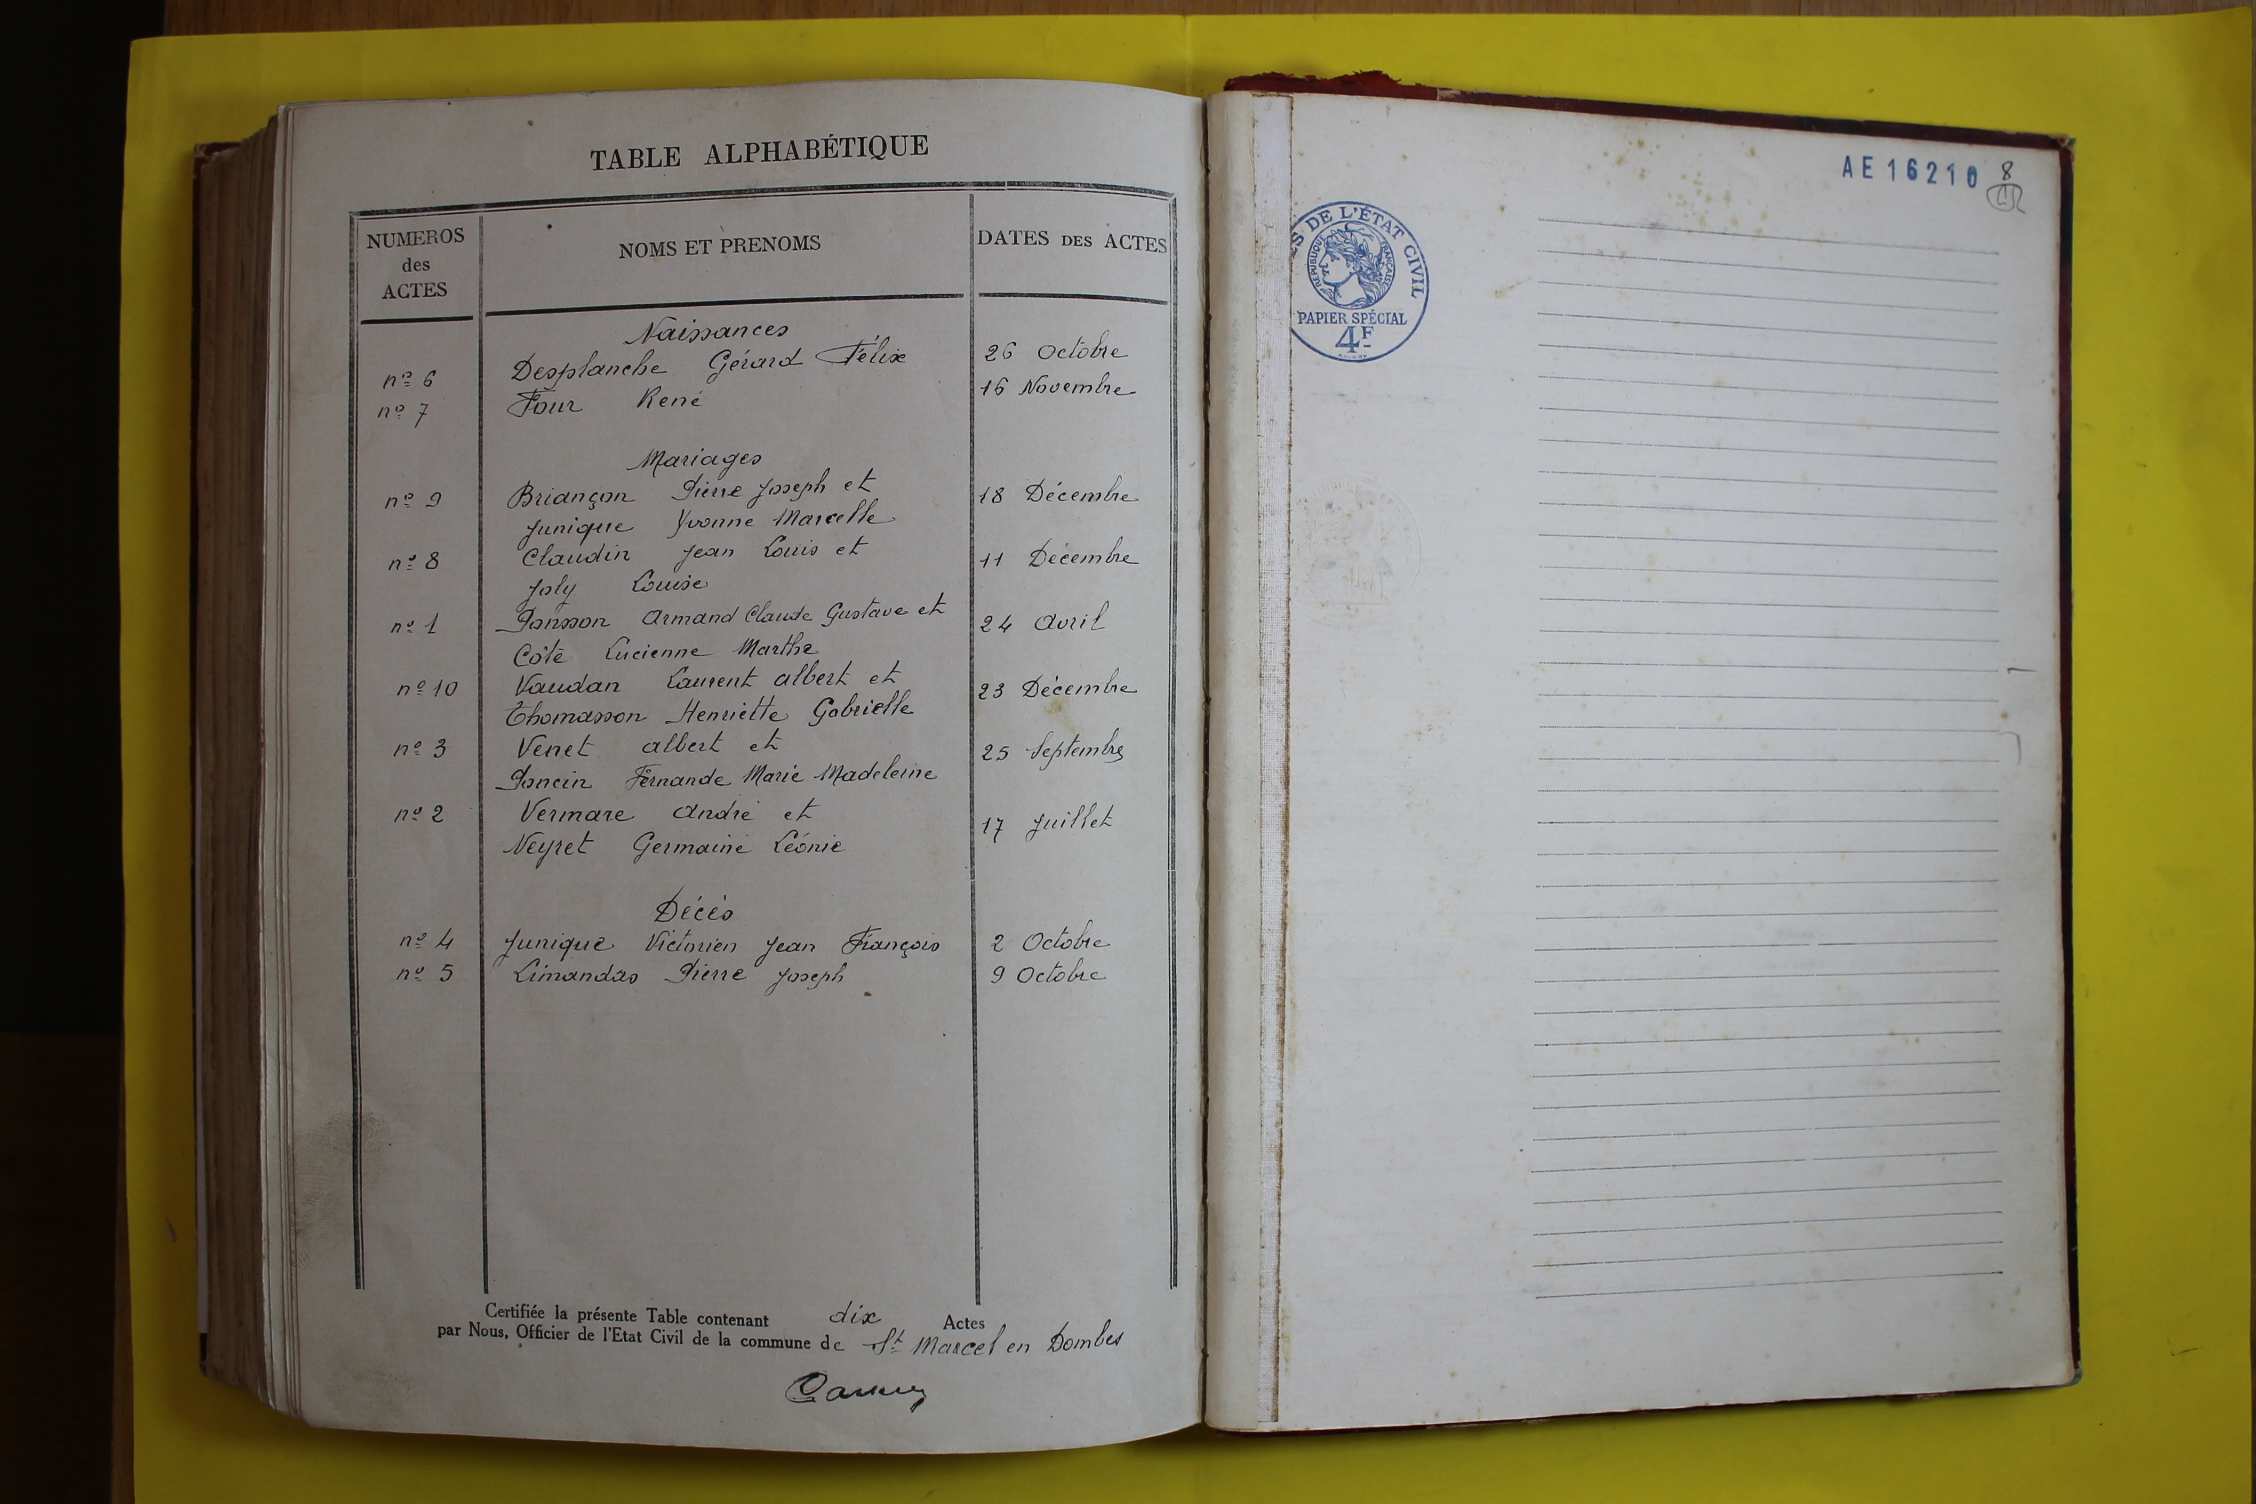 TABLE ALPHABÉTIQUE
NUMEROS
des
ACTES
NOMS ET PRENOMS
DATES DES ACTES
Naissances
nº 6 Desplanche Gérard Félix 26 Octobre
nº 7 Four René 16 Novembre
Mariages
nº 9 Briançon Pierre Joseph et 18 Décembre
Junique Yvonne Marcelle
nº 8 Claudin Jean Louis et 11 Décembre
Joly Louise
nº 1 Ponsson Armand Claude Gustave et 24 Avril
Côte Lucienne Marthe
nº 10 Vaudan Laurent Albert et 23 Décembre
Thomasson Henriette Gabrielle
nº 3 Venet Albert et 25 Septembre
Poncin Fernande Marie Madeleine
nº 2 Vermare André et 17 Juillet
Neyret Germaine Léonie
Décès
nº 4 Junique Victorien Jean François 2 Octobre
nº 5 Limandas Pierre Joseph 9 Octobre
Certifiée la présente Table contenant dix Actes
par Nous, Officier de l'Etat Civil de la commune de St Marcel en Dombes
AE16210
8
DE L'ÉTAT CIVIL
RÉPUBLIQUE FRANÇAISE
PAPIER SPÉCIAL
4F